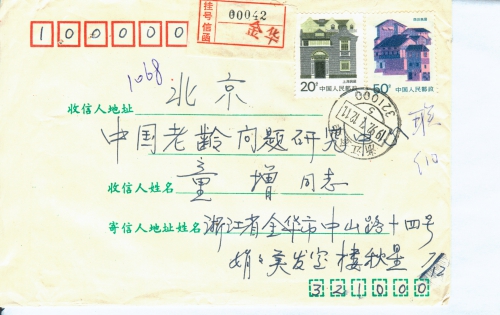 100000
挂号信函
00042
金华
20分 中国人民邮政
50分 中国人民邮政
321000
1068
收信人地址 北京
中国老龄问题研究中心
收信人姓名 童增 同志
寄信人地址姓名 浙江省金华市中山路十四号
楼秋星
321000